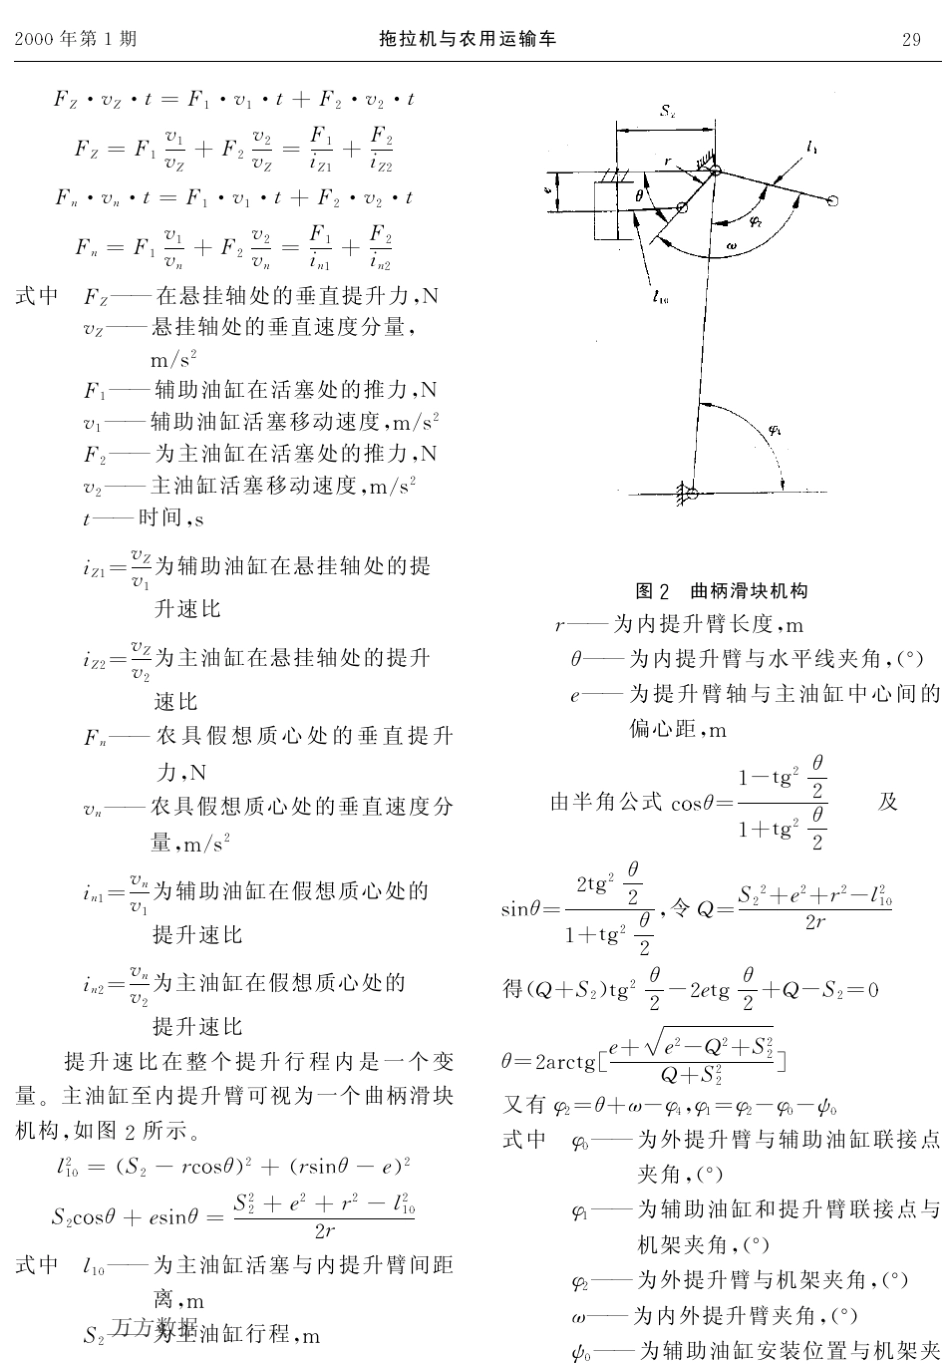 2000 年第 1 期
拖拉机与农用运输车
29
F_Z · v_Z · t = F_1 · v_1 · t + F_2 · v_2 · t
F_Z = F_1 v_1/v_Z + F_2 v_2/v_Z = F_1/i_{Z1} + F_2/i_{Z2}
F_n · v_n · t = F_1 · v_1 · t + F_2 · v_2 · t
F_n = F_1 v_1/v_n + F_2 v_2/v_n = F_1/i_{n1} + F_2/i_{n2}
式中 F_Z——在悬挂轴处的垂直提升力,N
v_Z——悬挂轴处的垂直速度分量,
m/s²
F_1——辅助油缸在活塞处的推力,N
v_1——辅助油缸活塞移动速度,m/s²
F_2——为主油缸在活塞处的推力,N
v_2——主油缸活塞移动速度,m/s²
t——时间,s
i_{Z1}=v_Z/v_1为辅助油缸在悬挂轴处的提
升速比
i_{Z2}=v_Z/v_2为主油缸在悬挂轴处的提升
速比
F_n——农具假想质心处的垂直提升
力,N
v_n——农具假想质心处的垂直速度分
量,m/s²
i_{n1}=v_n/v_1为辅助油缸在假想质心处的
提升速比
i_{n2}=v_n/v_2为主油缸在假想质心处的
提升速比
提升速比在整个提升行程内是一个变
量。主油缸至内提升臂可视为一个曲柄滑块
机构,如图 2 所示。
l_{10}² = (S_2 − rcosθ)² + (rsinθ − e)²
S_2cosθ + esinθ = (S_2² + e² + r² − l_{10}²)/2r
式中 l_{10}——为主油缸活塞与内提升臂间距
离,m
S_2——为主油缸行程,m
万方数据
S_2
l_1
r
θ
e
φ_2
ω
l_{10}
φ_1
图 2 曲柄滑块机构
r——为内提升臂长度,m
θ——为内提升臂与水平线夹角,(°)
e——为提升臂轴与主油缸中心间的
偏心距,m
由半角公式 cosθ=(1−tg² θ/2)/(1+tg² θ/2) 及
sinθ=(2tg² θ/2)/(1+tg² θ/2),令 Q=(S_2²+e²+r²−l_{10}²)/2r
得(Q+S_2)tg² θ/2−2etg θ/2+Q−S_2=0
θ=2arctg[(e+√(e²−Q²+S_2²))/(Q+S_2²)]
又有 φ_2=θ+ω−φ_4,φ_1=φ_2−φ_0−ψ_0
式中 φ_0——为外提升臂与辅助油缸联接点
夹角,(°)
φ_1——为辅助油缸和提升臂联接点与
机架夹角,(°)
φ_2——为外提升臂与机架夹角,(°)
ω——为内外提升臂夹角,(°)
ψ_0——为辅助油缸安装位置与机架夹